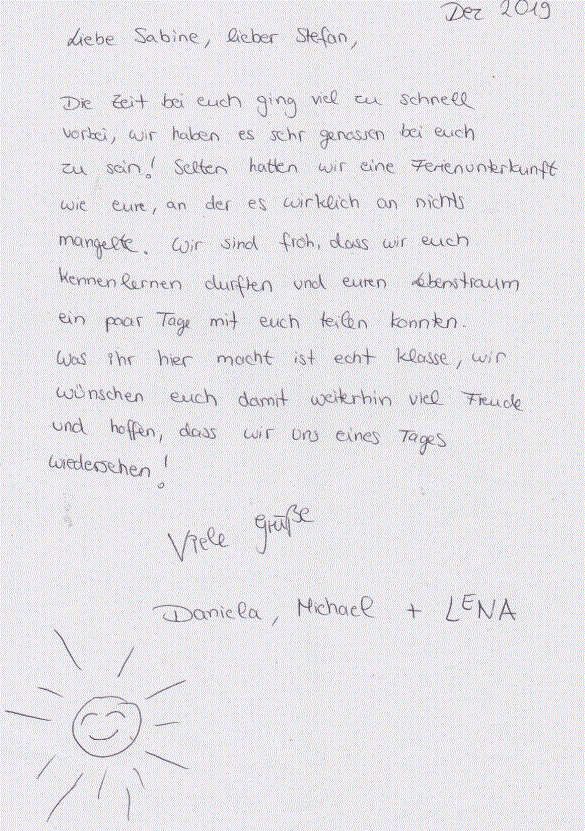 Dez 2019
Liebe Sabine, lieber Stefan,
Die Zeit bei euch ging viel zu schnell
vorbei, wir haben es sehr genossen bei euch
zu sein! Selten hatten wir eine Ferienunterkunft
wie eure, an der es wirklich an nichts
mangelte. Wir sind froh, dass wir euch
kennenlernen durften und euren Lebenstraum
ein paar Tage mit euch teilen konnten.
Was ihr hier macht ist echt klasse, wir
wünschen euch damit weiterhin viel Freude
und hoffen, dass wir uns eines Tages
wiedersehen!
Viele Grüße
Daniela, Michael + LENA